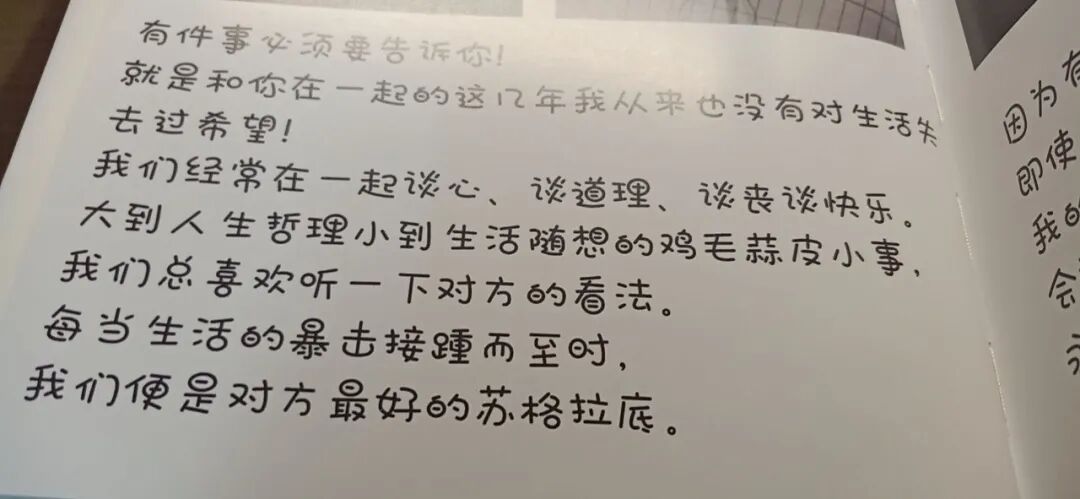 有件事必须要告诉你!
就是和你在一起的这几年我从来也没有对生活失
去过希望!
我们经常在一起谈心、谈道理、谈丧谈快乐。
大到人生哲理小到生活随想的鸡毛蒜皮小事,
我们总喜欢听一下对方的看法。
每当生活的暴击接踵而至时,
我们便是对方最好的苏格拉底。
因为有
即使
我的
会